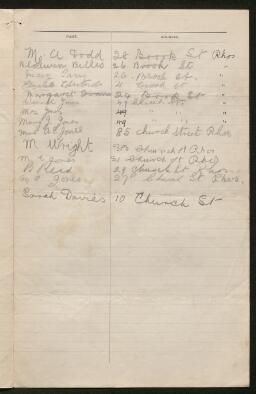 NAME. ADDRESS.
M. A Dodd 28 Brook St Rhos
Blodwen Bellis 26 Brook St "
26 Brook St. "
4 Brook St "
Margaret 24 Brook St "
Sarah Jones 49 Church St. "
Mrs Jones 49 " "
Mary J. Jones 49 " "
Mrs E Jones 85 Church Street Rhos
M Wright Church St Rhos
M E Jones 31 Church St Rhos
B Read 29 Church St Rhos
M E Jones 27 Church St Rhos.
Sarah Davies 10 Church St